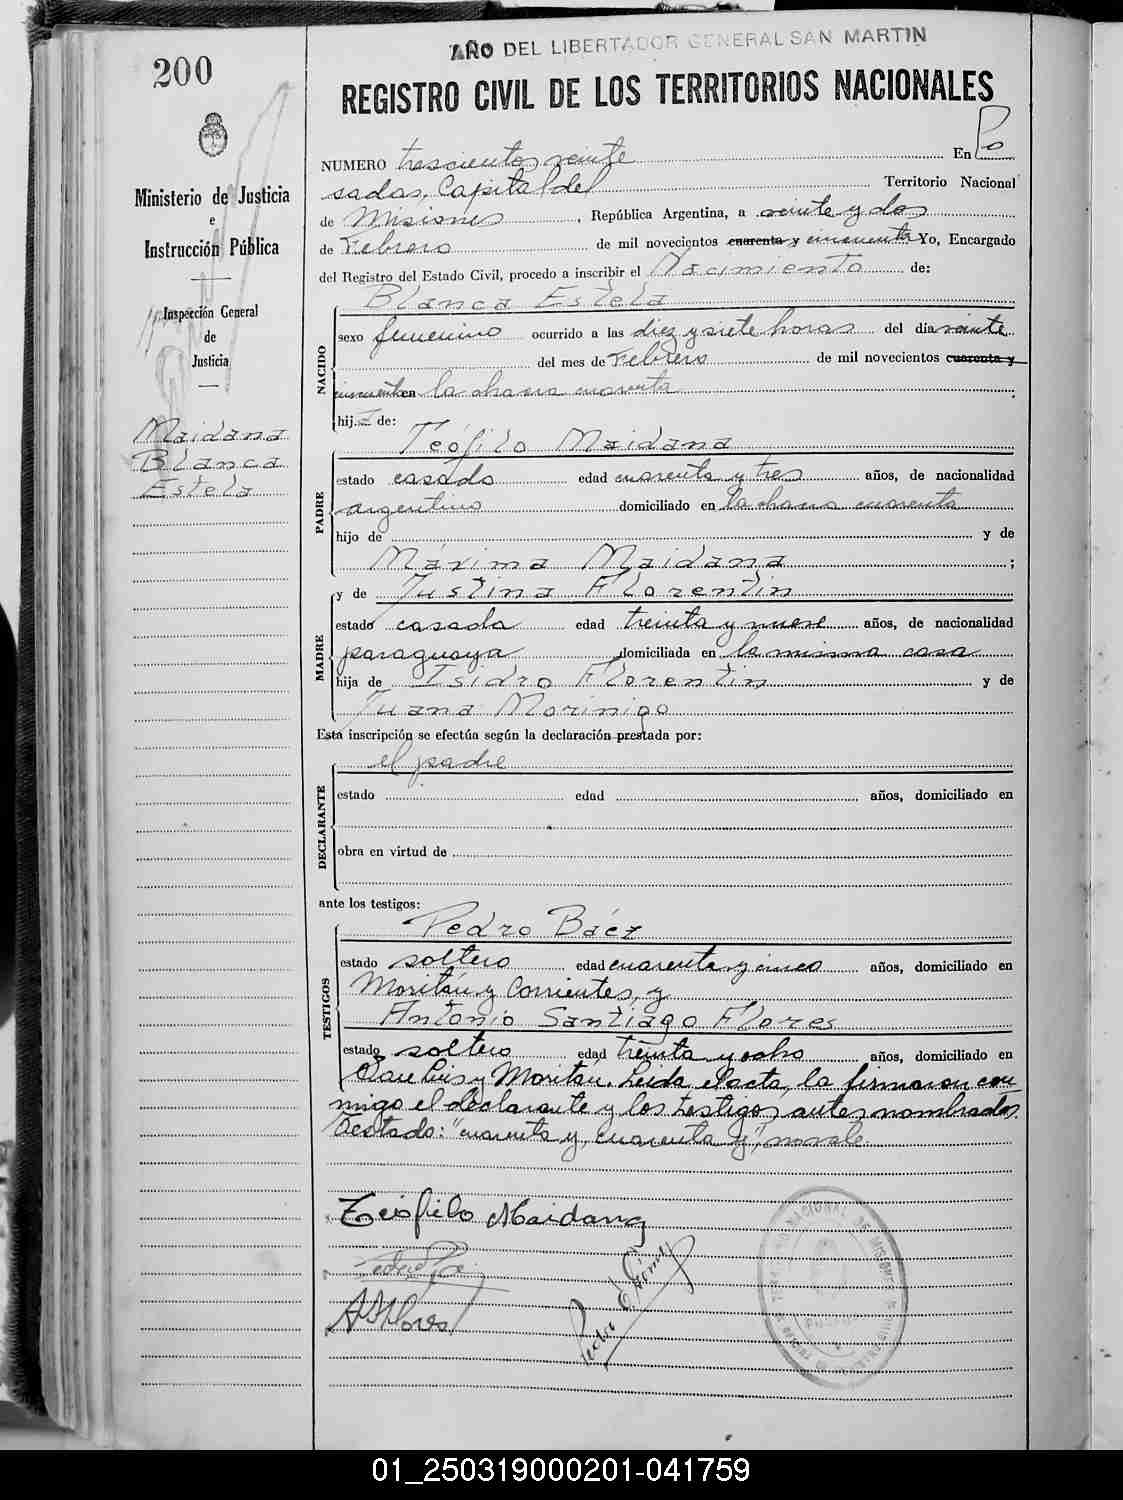 200
AÑO DEL LIBERTADOR GENERAL SAN MARTIN
REGISTRO CIVIL DE LOS TERRITORIOS NACIONALES
Ministerio de Justicia
e
Instrucción Pública
Inspección General
de
Justicia
Maidana
Blanca
Estela
NUMERO trescientos veinte En Po
sadas, Capital del Territorio Nacional
de Misiones, República Argentina, a veinte y dos
de Febrero de mil novecientos cuarenta y cincuenta Yo, Encargado
del Registro del Estado Civil, procedo a inscribir el Nacimiento de:
Blanca Estela
NACIDO
sexo femenino ocurrido a las diez y siete horas del día veinte
del mes de Febrero de mil novecientos cuarenta y
cincuenta en la chacra cuarenta ;
hij a de:
Teófilo Maidana
PADRE
estado casado edad cuarenta y tres años, de nacionalidad
argentino domiciliado en la chacra cuarenta
hijo de y de
Máxima Maidana ;
y de Justina Florentin
MADRE
estado casada edad treinta y nueve años, de nacionalidad
paraguaya domiciliada en la misma casa
hija de Isidro Florentin y de
Juana Morinigo
Esta inscripción se efectúa según la declaración prestada por:
el padre
DECLARANTE
estado edad años, domiciliado en
obra en virtud de
ante los testigos:
Pedro Báez
TESTIGOS
estado soltero edad cuarenta y cinco años, domiciliado en
Moritán y Corrientes, y
Antonio Santiago Flores
estado soltero edad treinta y ocho años, domiciliado en
San Luis y Moritán. Leida el acta, la firmaron con
migo el declarante y los testigos antes nombrados.
Testado: "cuarenta y, cuarenta y", no vale
Teofilo Maidana
A S Flores
01_250319000201-041759